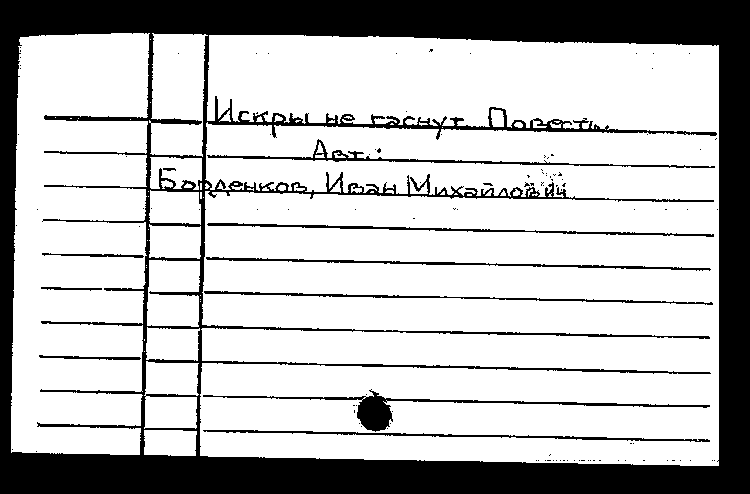 Искры не гаснут. Повесть.
Авт.:
Борденков, Иван Михайлович